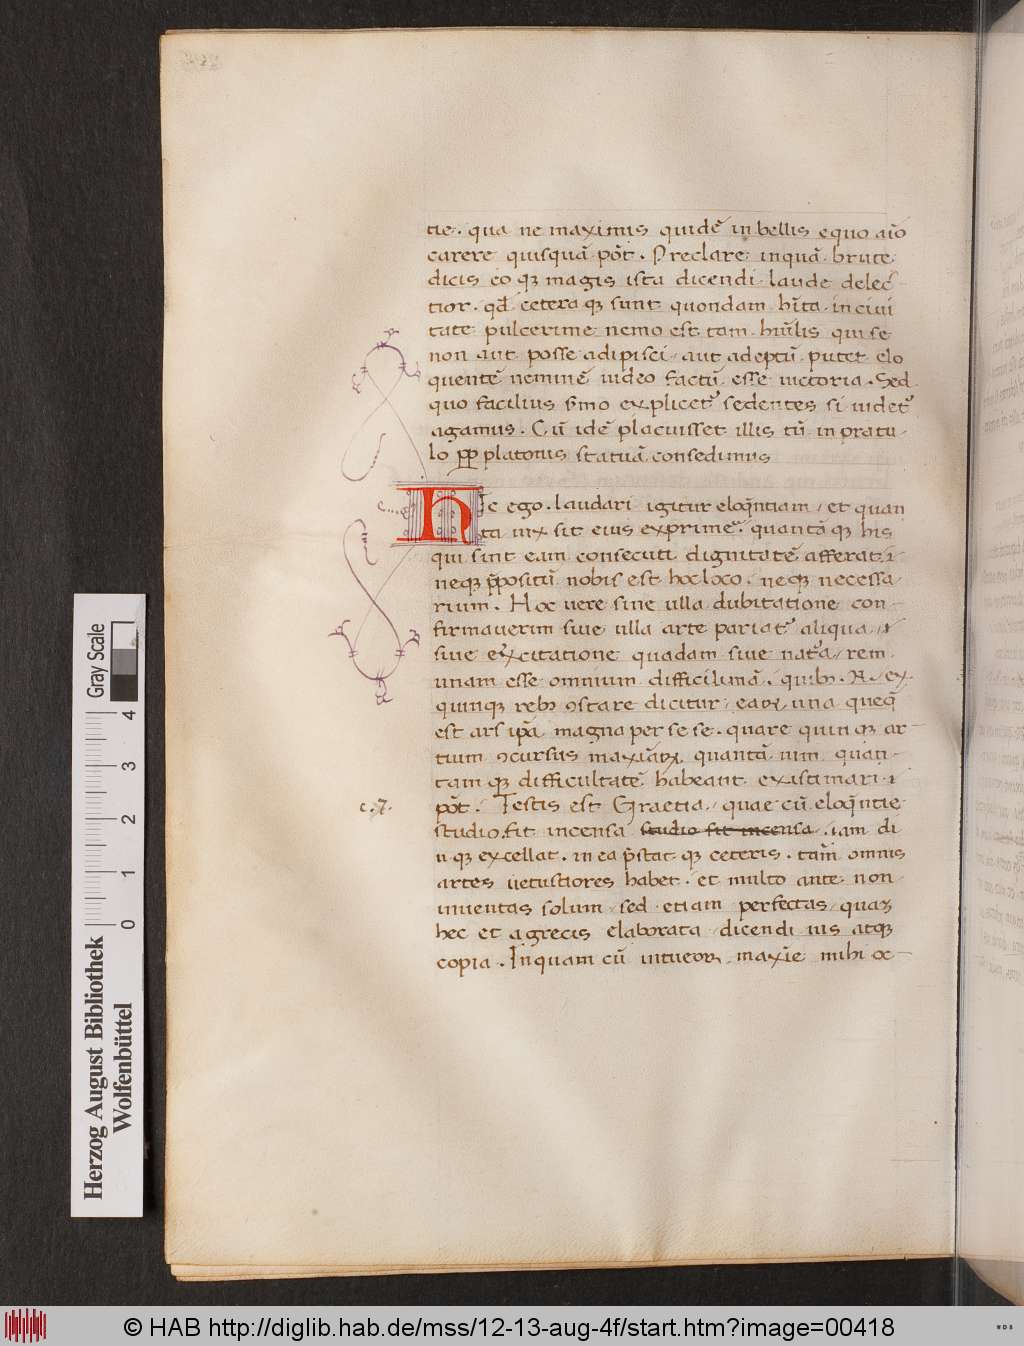 tie. qua ne maximis quidē in bellis equo aīo
carere quisquā pōt. Preclare inquā brute
dicis eo qꝫ magis ista dicendi laude delec
tior. qđ cetera qꝫ sunt quondam hīta in ciui
tate pulcerime nemo est tam hūilis qui se
non aut posse adipisci aut adeptū putet elo
quentē neminē uideo factū esse uictoria. Sed
quo facilius sˀmo explicetˀ sedentes si uidetˀ
agamus. Cū idē placuisset illis tū in pratu
lo ꝓꝑ platonis statuā consedimus
hIc ego. laudari igitur eloq̄ntiam et quan
ta uix sit eius exprimeˀ. quantā qꝫ his
qui sint eam consecuti dignitatē afferat.
neqꝫ ꝓpositū nobis est hoc loco. neqꝫ necessa
rium. Hoc uere sine ulla dubitatione con
firmauerim siue illa arte pariatˀ aliqua
siue exˀcitatione quadam siue natˀa rem
unam esse omnium difficilimā. quibꝫ .N. ex
quinqꝫ rebꝫ ꝯstare dicitur eaꝝ una queqꝫ
est ars ip̄a magna per se se. quare quinqꝫ ar
tium ꝯcursus maxiāꝝ quantā uim quan
tam qꝫ difficultatē habeant existimari
c. 7.
pōt. Testis est Graetia quae cū eloq̄ntie
studio sit incensa studio sit incensa iam di
u qꝫ excellat. in ea p̄stat qꝫ ceteris. tam̄ omnis
artes uetustiores habet. et multo ante non
inuentas solum sed etiam perfectas quaꝫ
hec et a grecis elaborata dicendi uis atqꝫ
copia. Inquam cū intueor maxīe mihi oc
Gray Scale
4 3 2 1 0
Herzog August Bibliothek
Wolfenbüttel
© HAB http://diglib.hab.de/mss/12-13-aug-4f/start.htm?image=00418